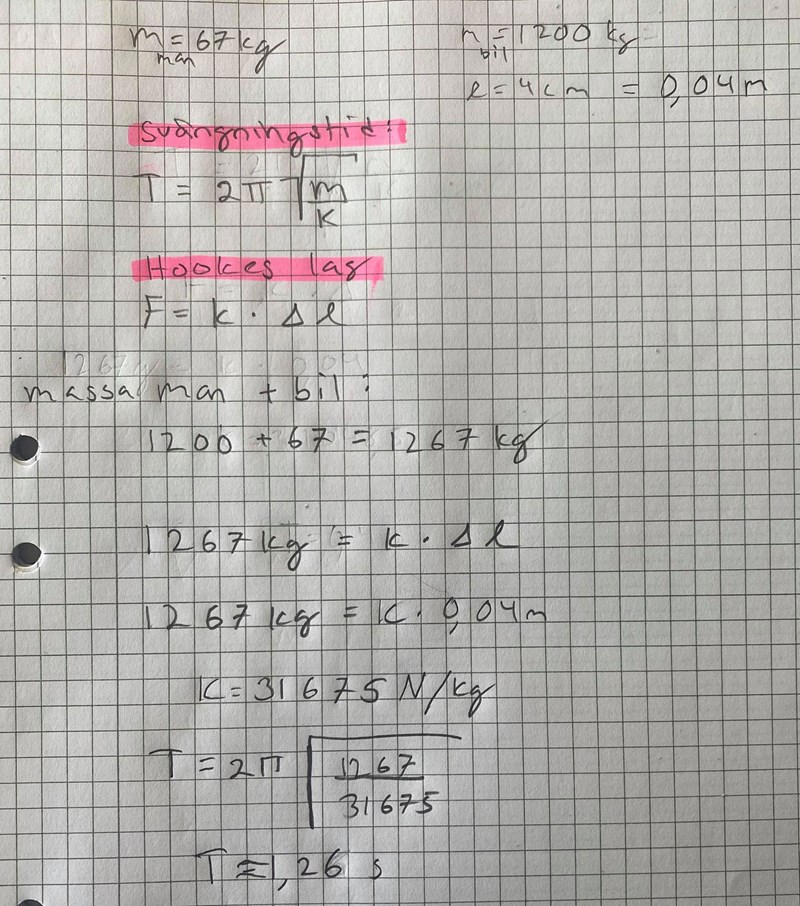 m = 67 kg
man
m = 1200 kg
bil
l = 4 cm = 0,04 m
Svängningstid:
T = 2π √m/k
Hookes lag
F = k · Δl
massa man + bil:
1200 + 67 = 1267 kg
1267 kg = k · Δl
1267 kg = k · 0,04 m
k = 31675 N/kg
T = 2π √1267/31675
T ≈ 1,26 s